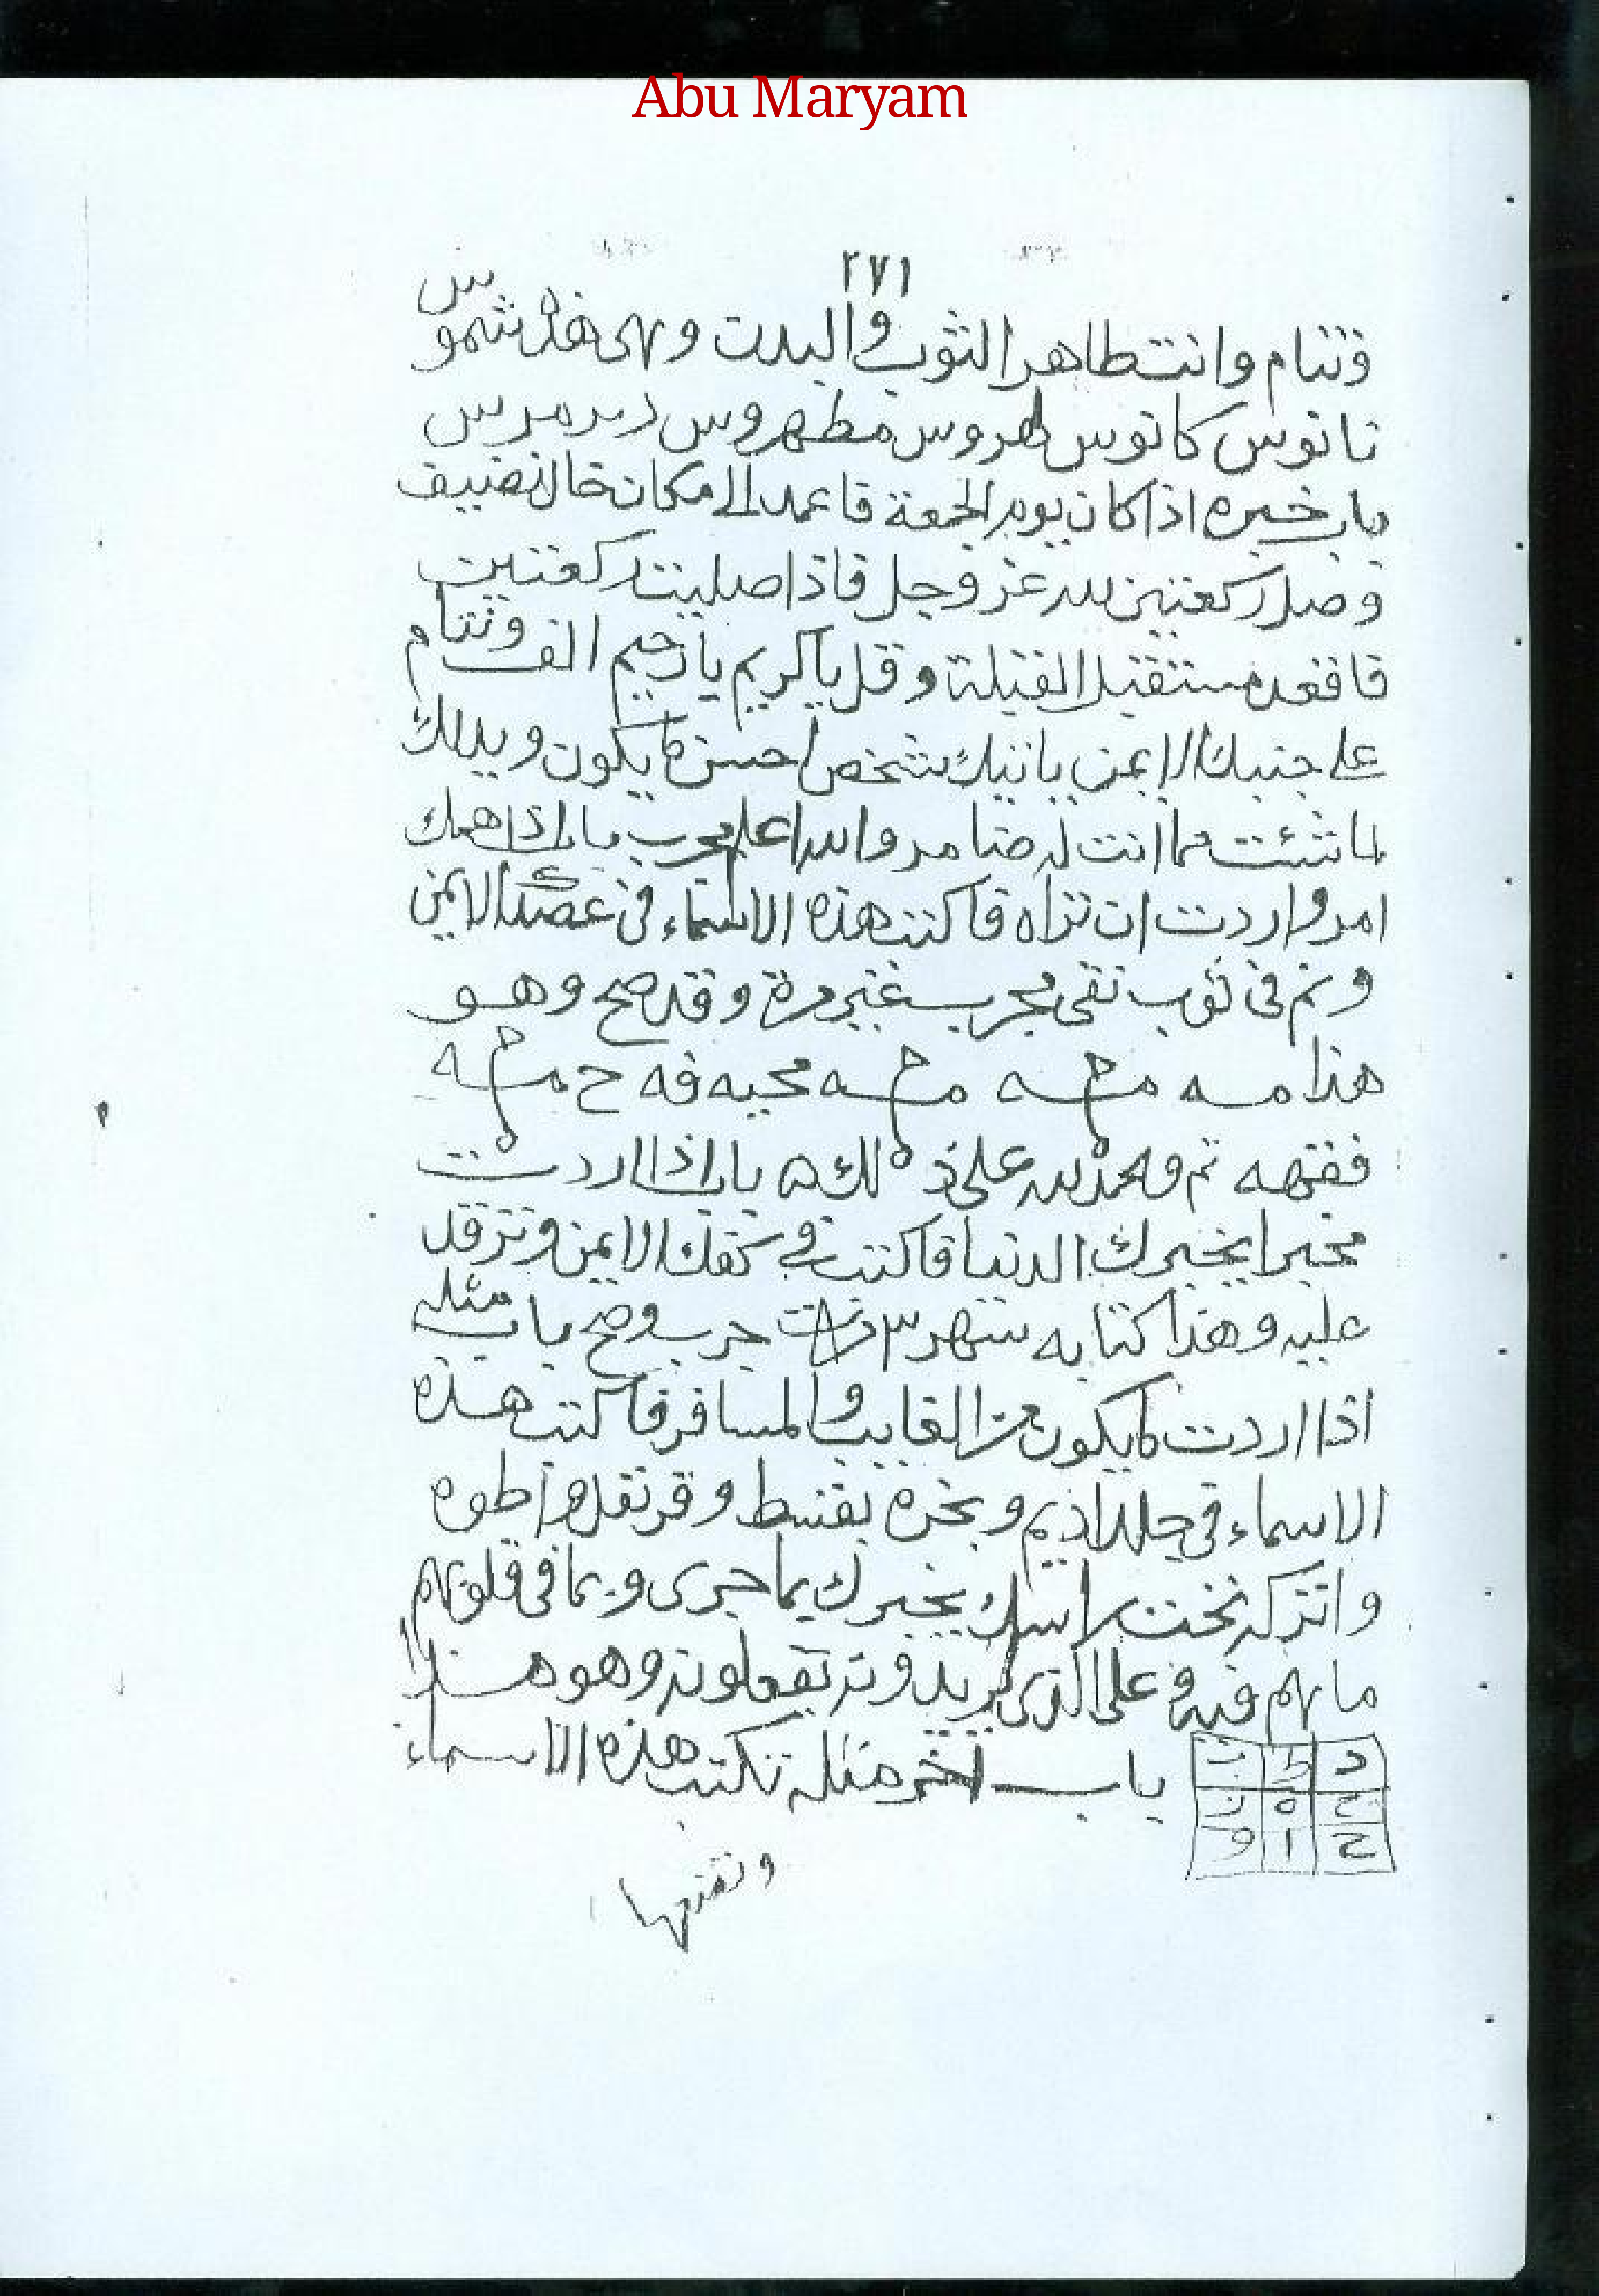 Abu Maryam
٢٧١
وتنام وانت طاهر الثوب والبدن وهى هذه شموس
نانوس كانوس طهروس مطهروس
باب خيره اذا كان يوم الجمعة فاعمد الى مكان خال نضيف
وصل ركعتين لله عز وجل فاذا صليت ركعتين
فاقعد مستقبل القبلة وقل يا كريم يا رحيم الف وتنام
على جنبك الايمن ياتيك شخص احسن ما يكون ويدلك
لما شئت مما انت له ضامر والله اعلم مجرب باب اذا اهمك
امر واردت ان تراه فاكتب هذه الاسماء فى عضدك الايمن
ونم فى ثوب نقى مجرب غير مرة وقد صح وهو
هذا مه محيه فه ح
ففتهه تم والحمد لله على ذلك ه باب اذا اردت
مخبرا يخبرك الدنيا فاكتب فى كفك الايمن وترقد
عليه وهذا كتابه شهر ٣ مرات جرب وصح باب مثله
اذا اردت ما يكون من الغايب والمسافر فاكتب هذه
الاسماء فى جلد اديم وبخره بقسط وقرنفل واطوه
واتركه تحت راسك يخبرك بما جرى وبما فى قلوبهم
ما هم فيه وعلى الذى يريدونه تفعلونه وهو هذا
د ط ب
ج ه ز
ح ا و
باب اخر مثله تكتب هذه الاسماء